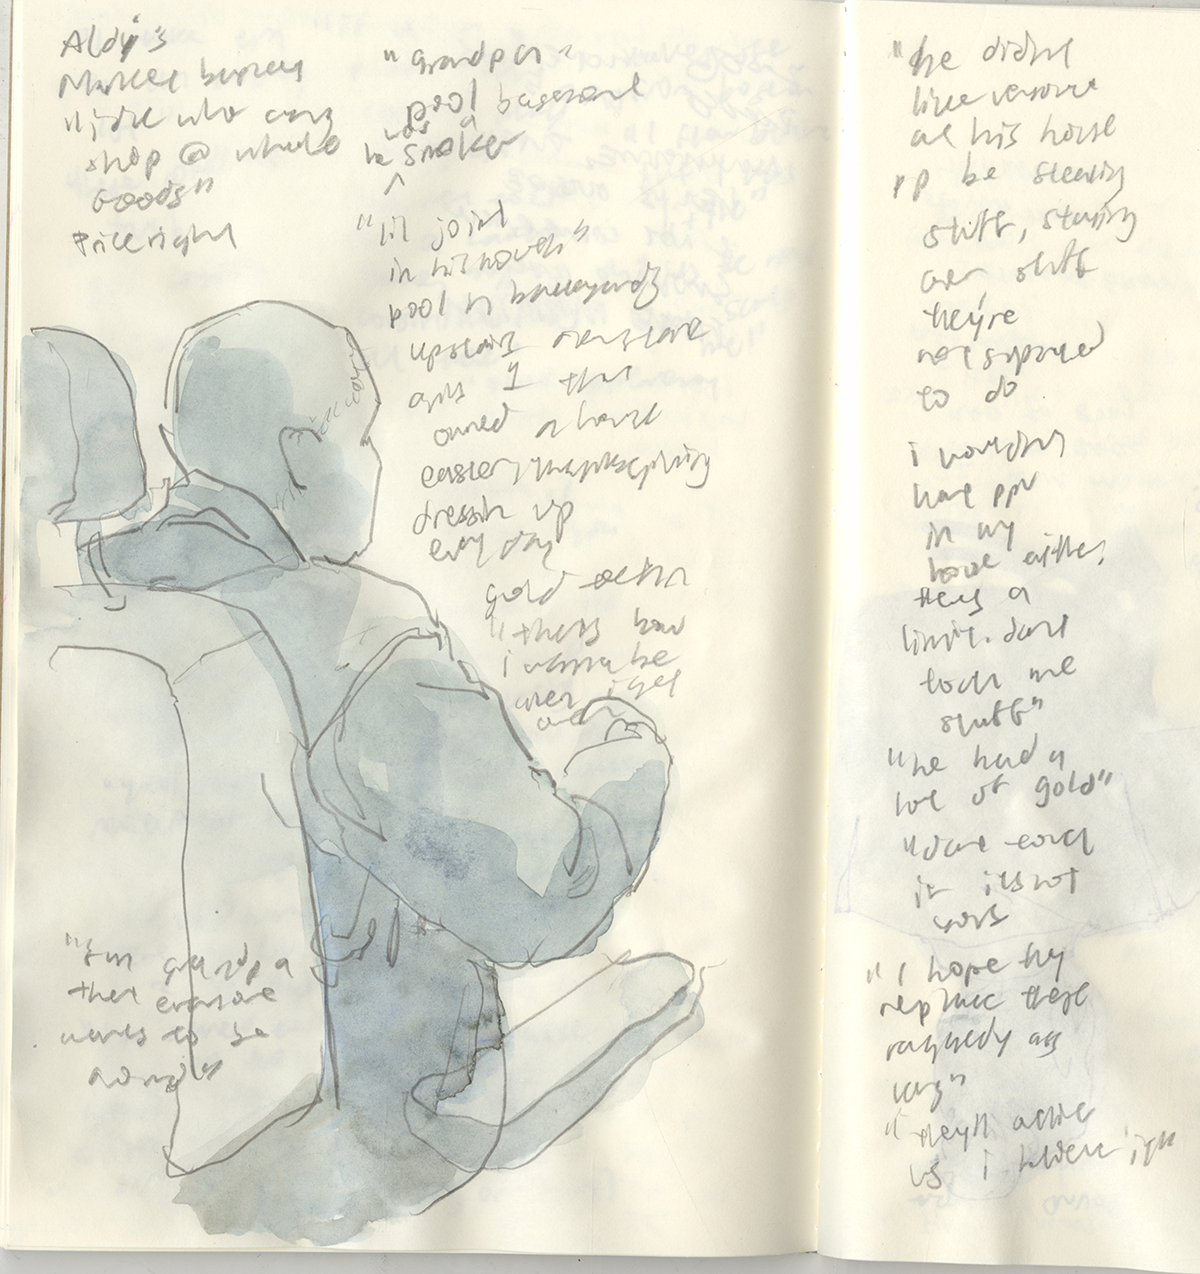 Aldy's
Market
shop @ whole
Goods"
Price right
"grandpa"
pool basement
was a
he smoker
"lil joint
in his house"
pool in backyard
upstairs downstairs
only 1 that
owned a house
easter/thanksgiving
dressin up
every day
gold
"thats how
i wanna be
when i get
"I'm grandpa
that everyone
wants to be
around"
"he didnt
like everyone
at his house
ppl be stealing
stuff, starting
over stuff
they're
not supposed
to do.
i wouldnt
have ppl
in my
house either,
theres a
limit. dont
touch me
stuff"
"he had a
lot of gold"
"dont touch
it its not
yours
"i hope they
replace these
raggedy ass
"they'll
us i believe